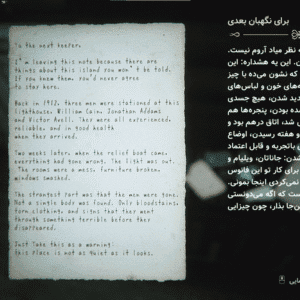 To the next keeper:
I'm leaving this note because there are
things about this island you won't be told.
If you knew them, you'd never agree
to stay here.
Back in 1912, three men were stationed at this
lighthouse. William Cain, Jonathan Addams
and Victor Avell. They were all experienced,
reliable, and in good health
when they arrived.
Two weeks later, when the relief boat came,
everything had gone wrong. The light was out.
The rooms were a mess, furniture broken,
windows smashed.
The strangest part was that the men were gone.
Not a single body was found. Only bloodstains,
torn clothing, and signs that they went
through something terrible before they
disappeared.
Just take this as a warning:
this place is not as quiet as it looks.
برای نگهبان بعدی
نظر میاد آروم نیست.
این یه هشداره: این
که نشون می‌ده با چیز
های خون و لباس‌های
دید شدن، هیچ جسدی
ده بودن، پنجره‌ها هم
ش شد، اتاق درهم بود و
هفته رسیدن، اوضاع
باتجربه و قابل اعتماد
شدن: جاناتان، ویلیام و
برای کار تو این فانوس
نمی‌کردی اینجا بمونی.
ست که اگه می‌دونستی
جا بذار، چون چیزایی